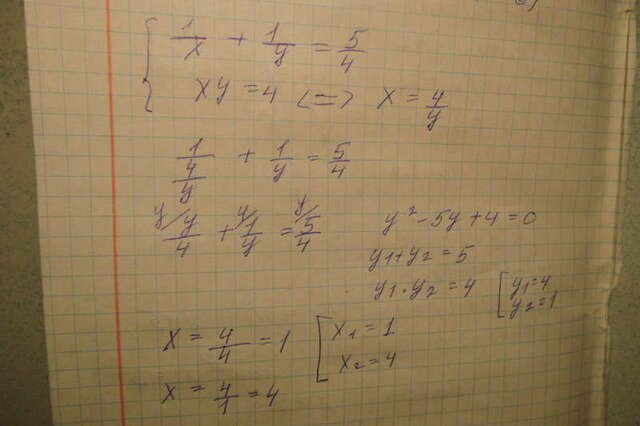 { 1/x + 1/y = 5/4
xy = 4 <=> x = 4/y
1/(4/y) + 1/y = 5/4
y/ y/4 + y/ 1/y = y/ 5/4
y² - 5y + 4 = 0
y1 + y2 = 5
y1 · y2 = 4 [ y1 = 4
y2 = 1
x = 4/4 = 1 [ x1 = 1
x2 = 4
x = 4/1 = 4